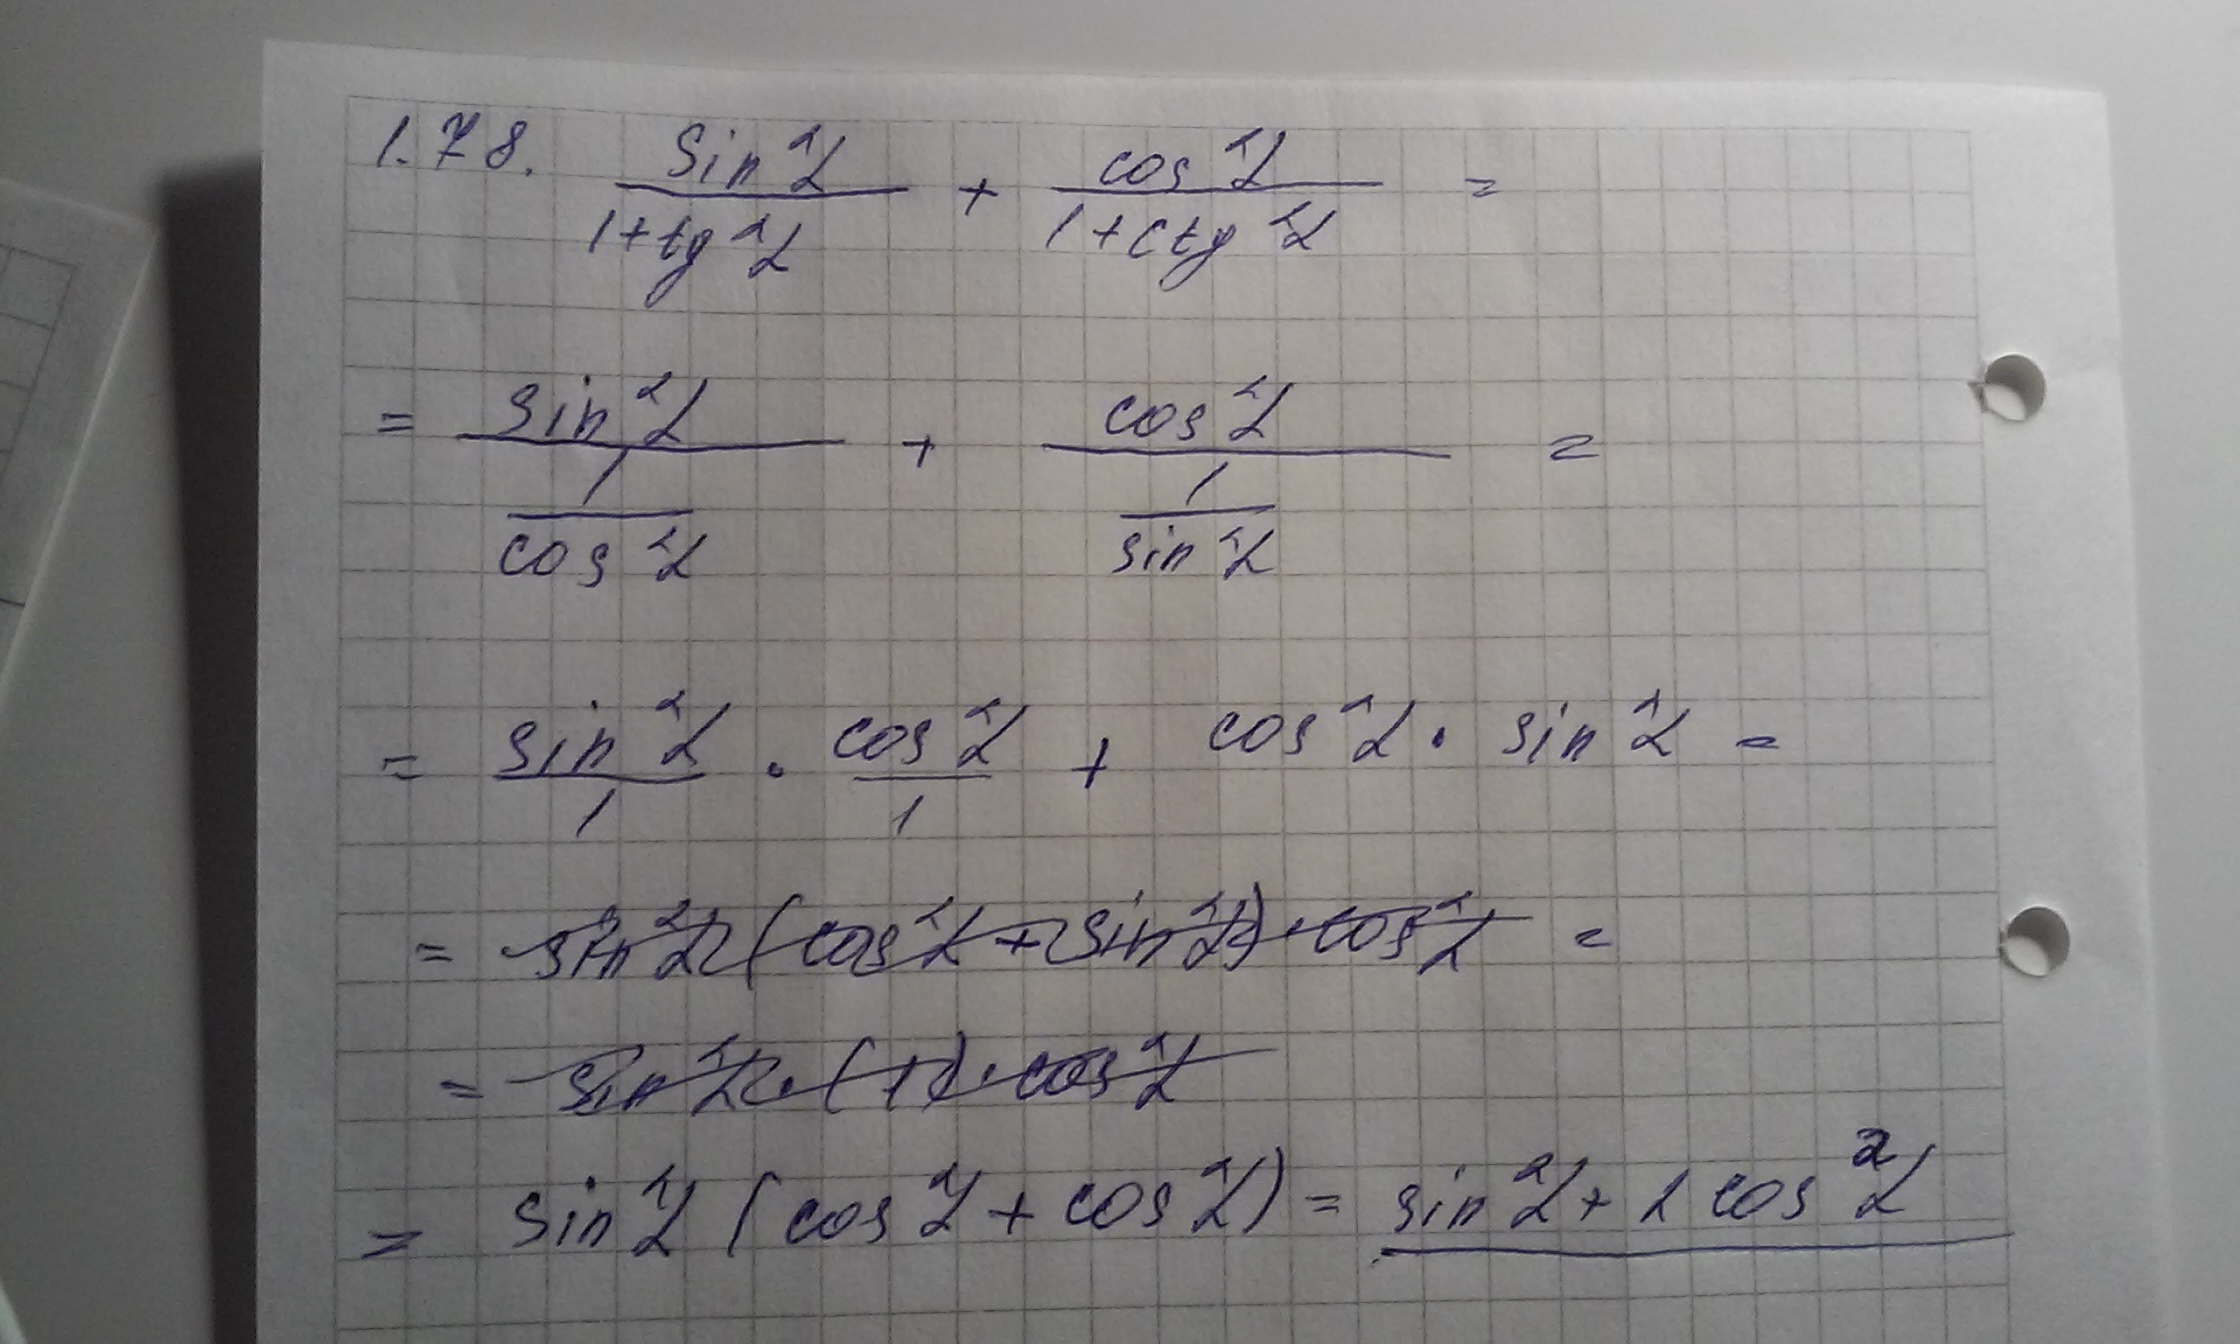 1.78. sin²α/(1+tg²α) + cos²α/(1+ctg²α) =
= sin²α/(1/cos²α) + cos²α/(1/sin²α) =
= sin²α/1 · cos²α/1 + cos²α · sin²α =
= sin²α (cos²α + sin²α) · cos²α =
= sin²α · (1) · cos²α
= sin²α (cos²α + cos²α) = sin²α + 2 cos²α